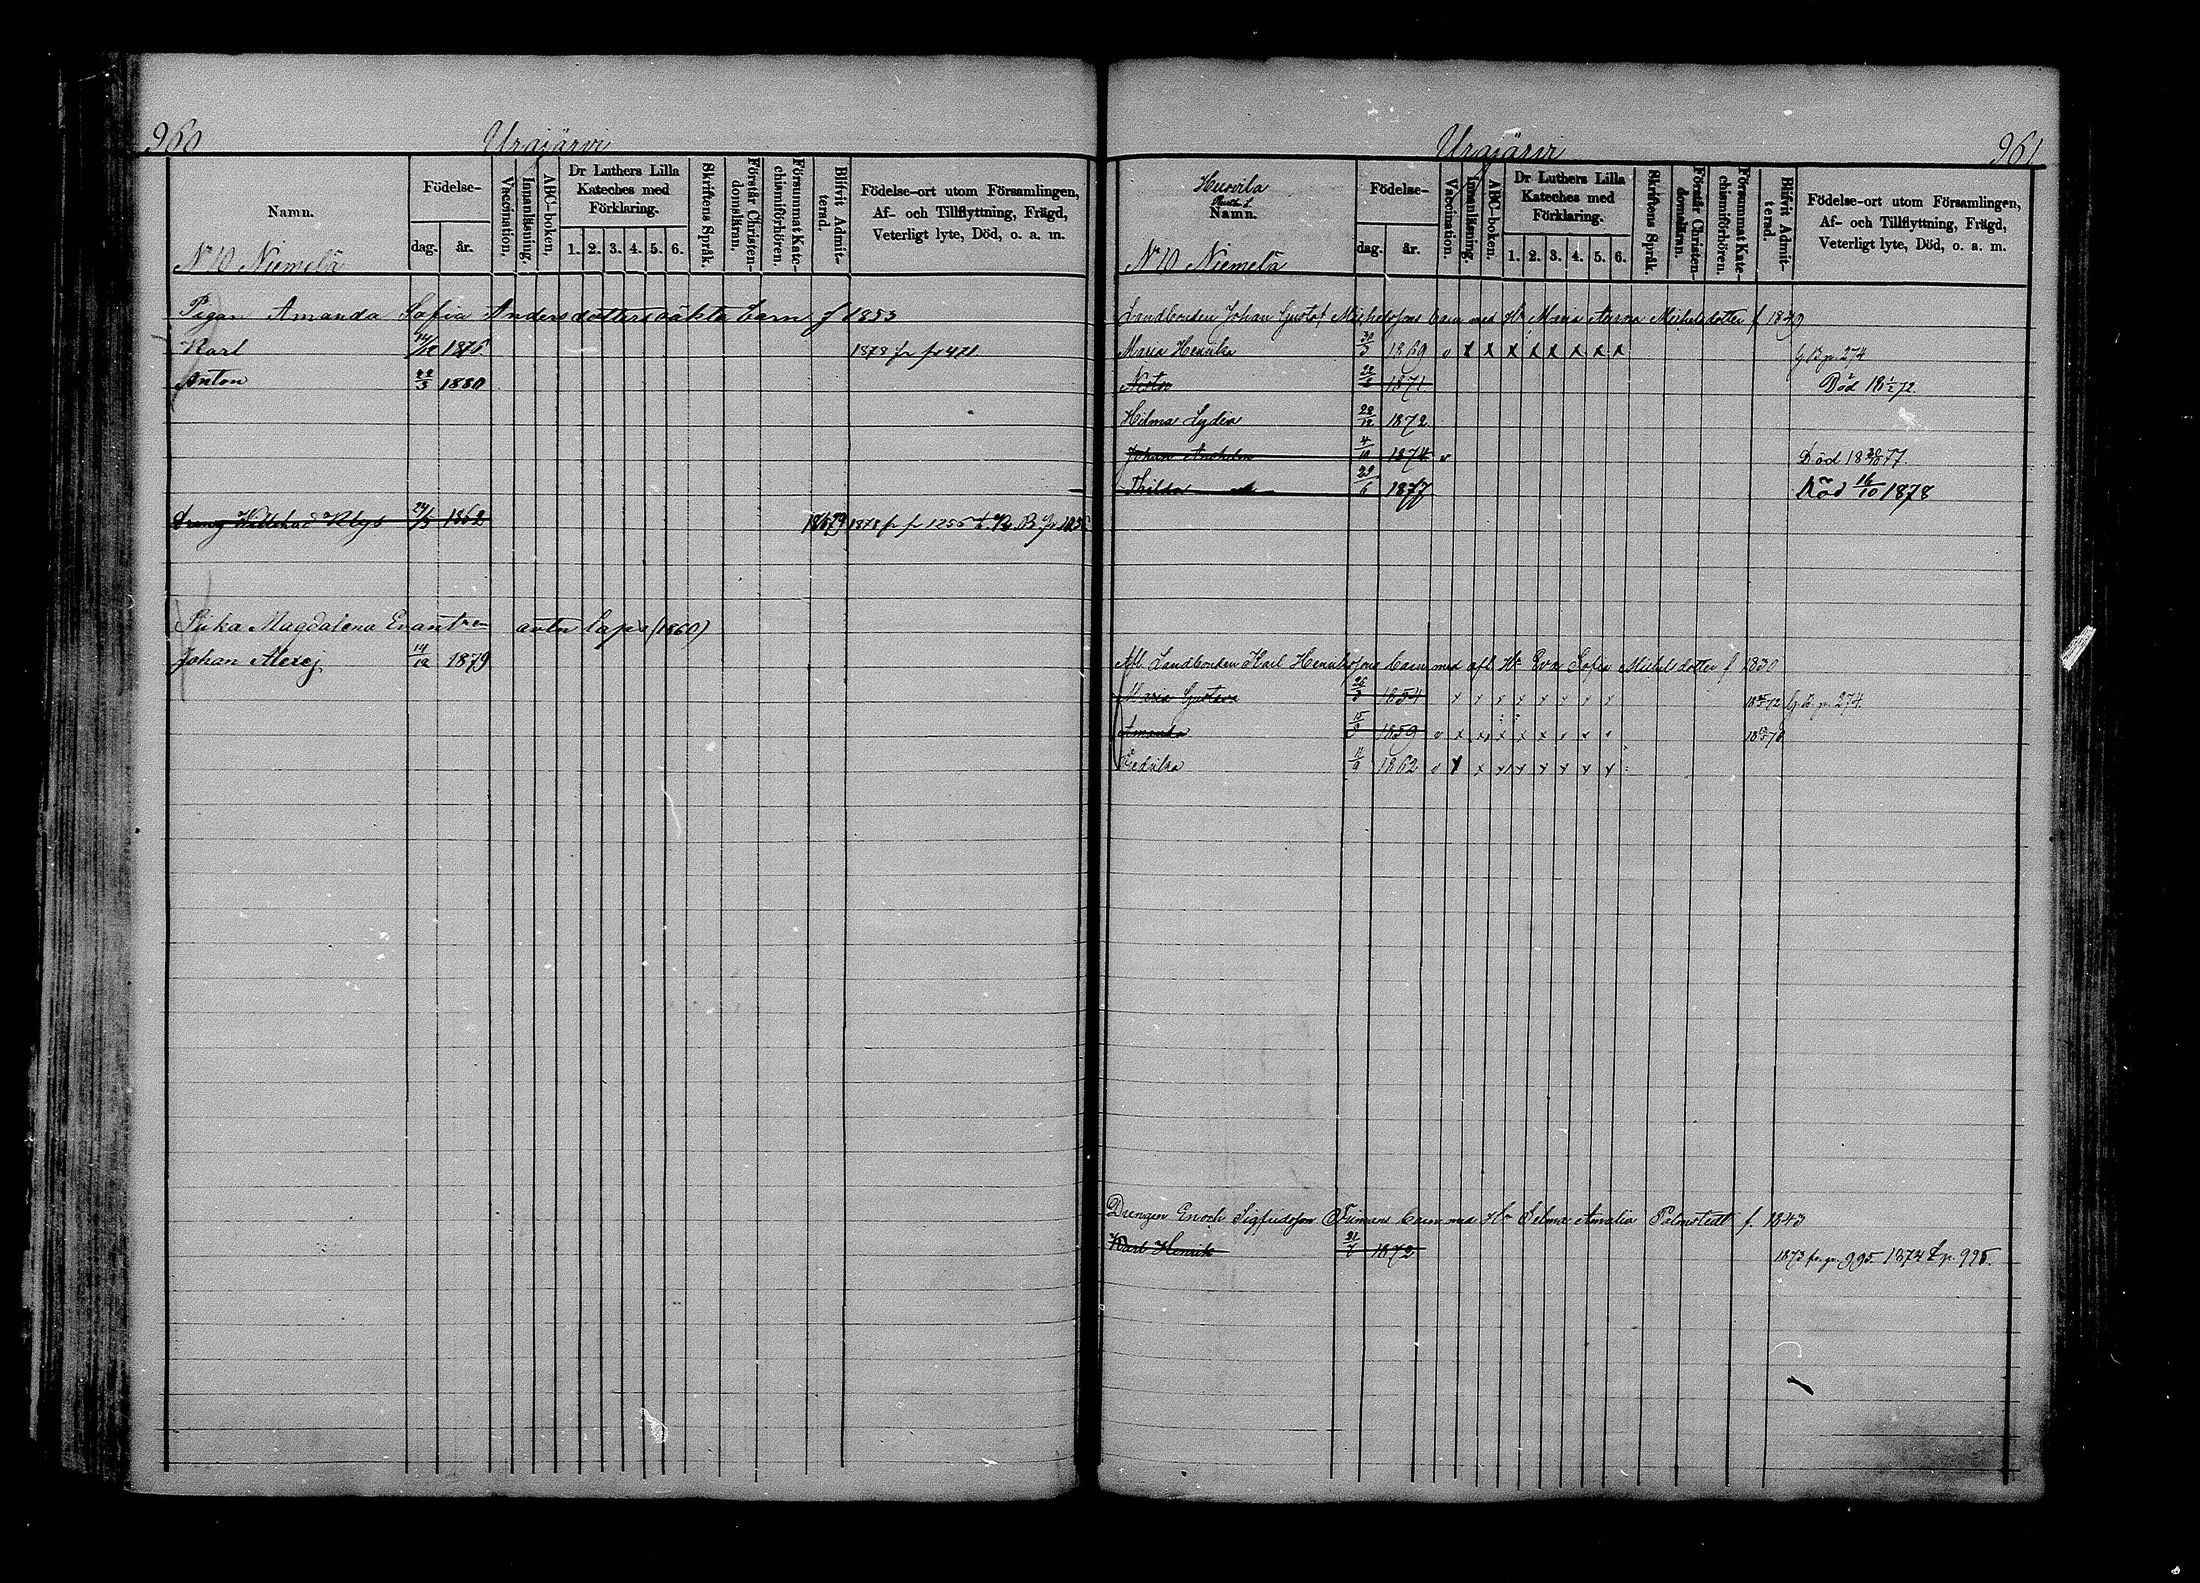 960 Urajärvi
Namn.
Födelse-
dag. år.
Vaccination.
Innanläsning.
ABC-boken.
Dr Luthers Lilla
Kateches med
Förklaring.
1. 2. 3. 4. 5. 6.
Skriftens Språk.
Förstår Christen-
domsläran.
Försummat Kate-
chismiförhören.
Blifvit Admit-
terad.
Födelse-ort utom Församlingen,
Af- och Tillflyttning, Frägd,
Veterligt lyte, Död, o. a. m.
No 10 Niemelä
Pigan Amanda Sofia Andersdotters oäkta barn f 1853
Karl 1875 1878 fr p 471
Anton 22/3 1880
24/5 1862 1878 fr p 1256
Magdalena avtn lapsi (1860)
Johan Alexej 14/12 1879
Urajärvi 961
Huovila
Namn.
Födelse-
dag. år.
Vaccination.
Innanläsning.
ABC-boken.
Dr Luthers Lilla
Kateches med
Förklaring.
1. 2. 3. 4. 5. 6.
Skriftens Språk.
Förstår Christen-
domsläran.
Försummat Kate-
chismiförhören.
Blifvit Admit-
terad.
Födelse-ort utom Församlingen,
Af- och Tillflyttning, Frägd,
Veterligt lyte, Död, o. a. m.
No 10 Niemelä
Landbonden Johan Gustaf Michelssons barn med Hu Maria Anna Michelsdotter f 1839
Maria Henrika 30/3 1869 v x x x x x x x x p. 274
Nestor 1871 Död
Hilma Lydia 28/12 1872
Johan Anshelm 4/10 1874 v Död 18 77.
Hilda 29/6 1877 Död 16/10 1878
Afl. Landbonden Karl Henrikssons barn med afl. Hu Eva Sofia Michelsdotter f 1830
Maria Gustava 1854 p. 274
Amanda 1859
Fredrika 1862
Drengen Enoch Sigfridsson Frimans barn med Hu Selma Amalia Palmstedt f. 1843
Karl Henrik 31/7 1872 1873 fr. p. 995. 1874 t. p. 995.